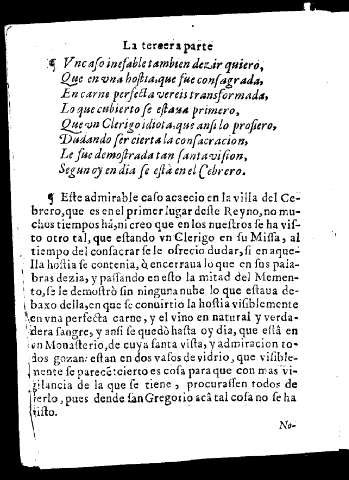 La tercera parte
¶ Vn caso inefable tambien dezir quiero,
Que en vna hostia, que fue consagrada,
En carne perfecta vereis transformada,
Lo que cubierto se estaua primero,
Que vn Clerigo idiota, que ansi lo profiero,
Dudando ser cierta la consacracion,
Le fue demostrada tan santa vision,
Segun oy en dia se està en el Cebrero.
¶ Este admirable caso acaecio en la villa del Ce-
brero, que es en el primer lugar deste Reyno, no mu-
chos tiempos hà, ni creo que en los nuestros se ha vis-
to otro tal, que estando vn Clerigo en su Missa, al
tiempo del consacrar se le ofrecio dudar, si en aque-
lla hostia se contenia, ò encerraua lo que en sus pala-
bras dezia, y passando en esto la mitad del Memen-
to, se le demostrò sin ninguna nube lo que estaua de-
baxo della, en que se conuirtio la hostia visiblemente
en vna perfecta carne, y el vino en natural y verda-
dera sangre, y ansi se quedò hasta oy dia, que està en
vn Monasterio, de cuya santa vista, y admiracion to-
dos gozan: estan en dos vasos de vidrio, que visible-
mente se parecen: cierto es cosa para que con mas vi-
gilancia de la que se tiene, procurassen todos de
verlo, pues dende san Gregorio acà tal cosa no se ha
visto.
No-